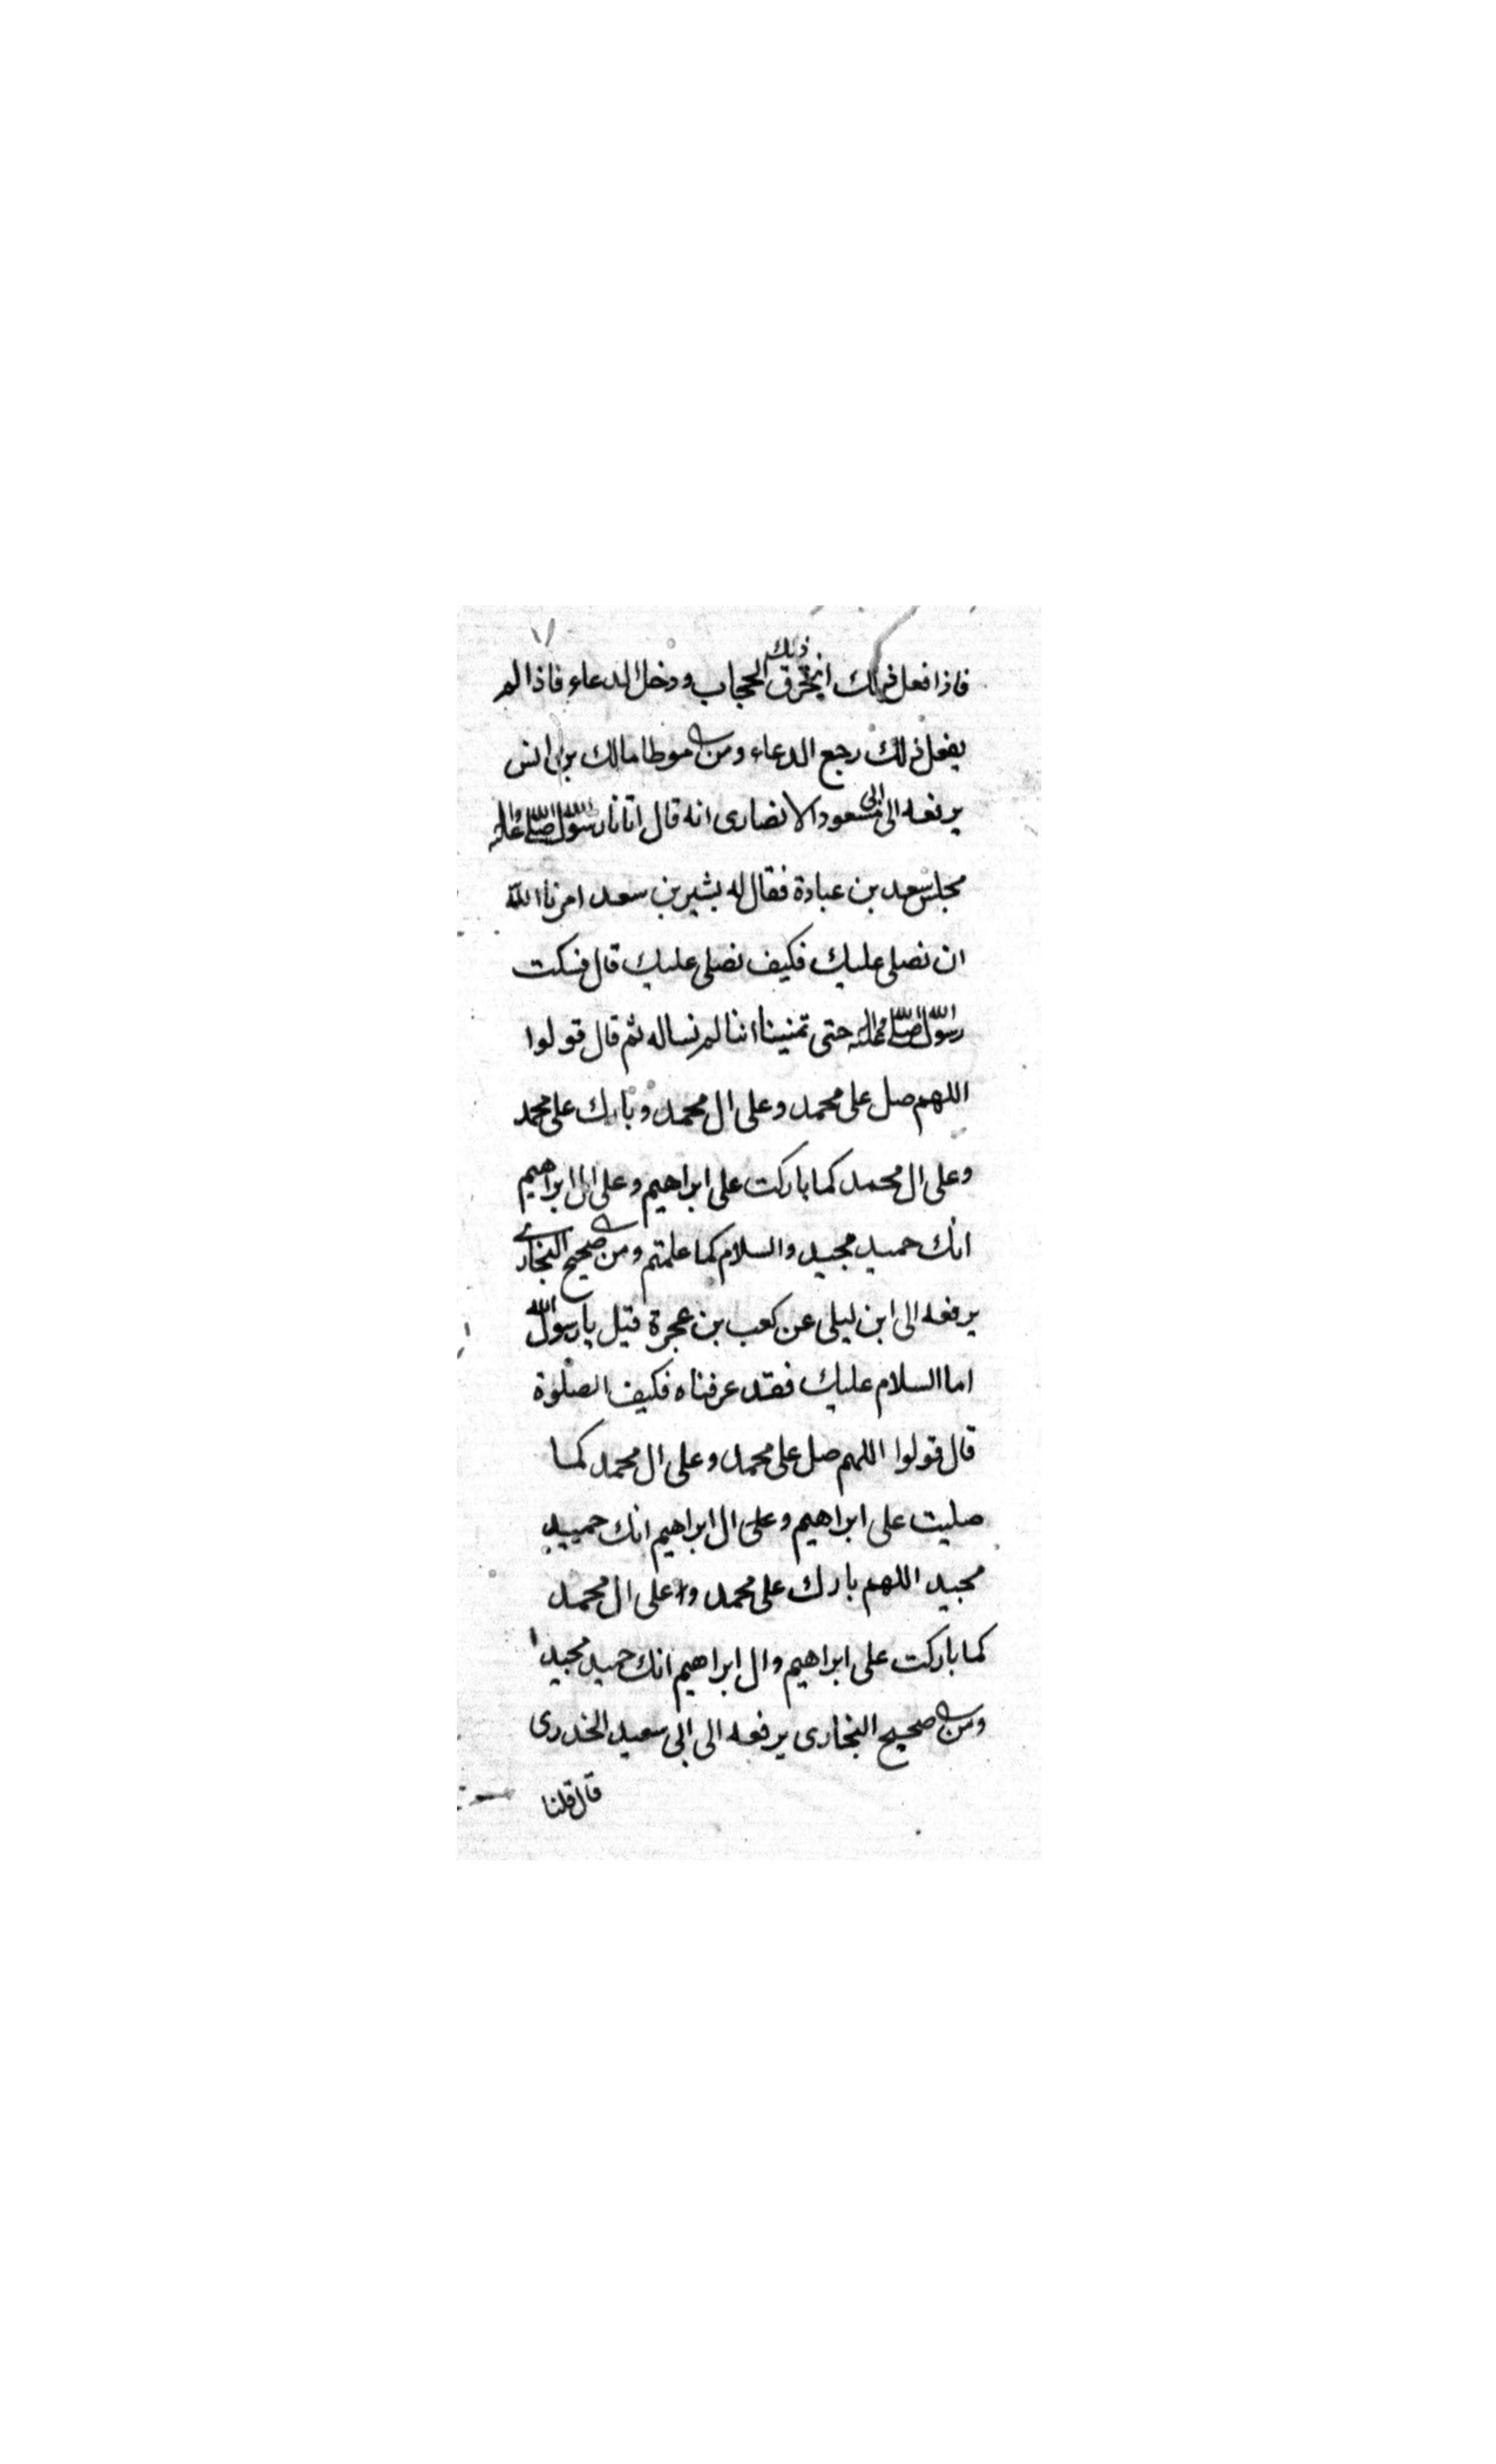 فاذا فعل ذلك انخرق ذلك الحجاب ودخل الدعاء فاذا لم
يفعل ذلك رجع الدعاء ومن موطا مالك بن انس
يرفعه الى ابى مسعود الانصارى انه قال اتانا رسول الله صلى الله عليه
مجلس سعد بن عبادة فقال له بشير بن سعد امرنا الله
ان نصلى عليك فكيف نصلى عليك قال فسكت
رسول الله صلى الله عليه حتى تمنينا اننا لم نساله ثم قال قولوا
اللهم صل على محمد وعلى ال محمد وبارك على محمد
وعلى ال محمد كما باركت على ابراهيم وعلى ال ابراهيم
انك حميد مجيد والسلام كما علمتم ومن صحيح البخارى
يرفعه الى ابن ليلى عن كعب بن عجرة قيل يا رسول الله
اما السلام عليك فقد عرفناه فكيف الصلوة
قال قولوا اللهم صل على محمد وعلى ال محمد كما
صليت على ابراهيم وعلى ال ابراهيم انك حميد
مجيد اللهم بارك على محمد وعلى ال محمد
كما باركت على ابراهيم وال ابراهيم انك حميد مجيد
ومن صحيح البخارى يرفعه الى ابى سعيد الخدرى
قال قلنا